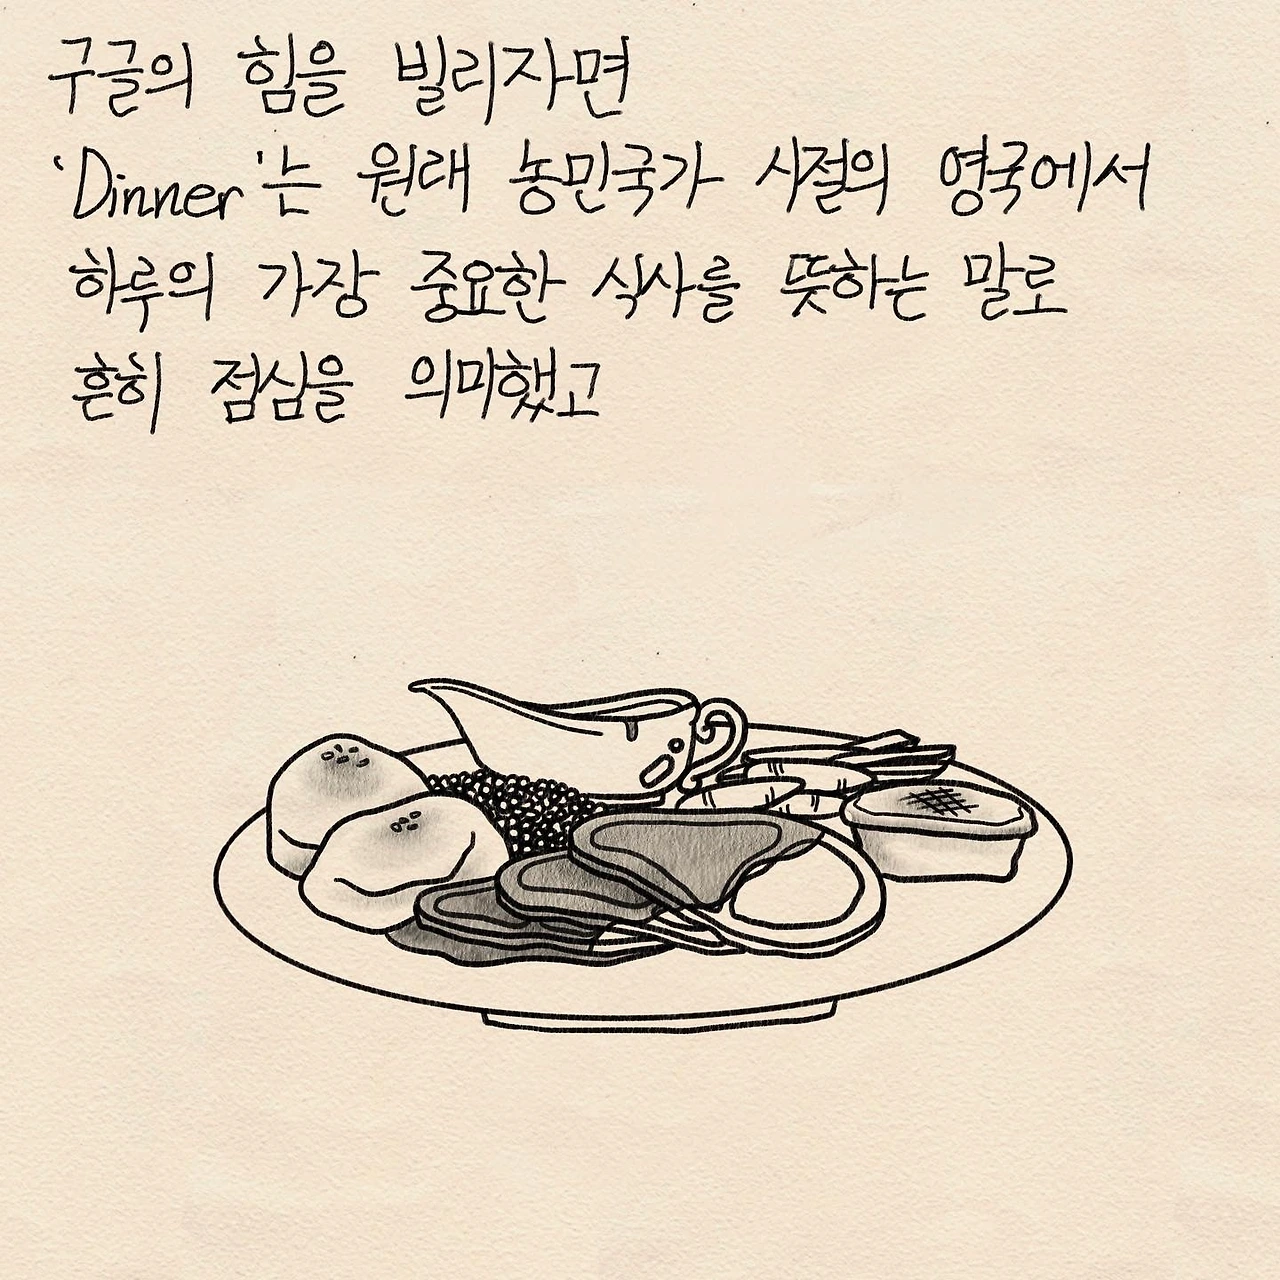 구글의 힘을 빌리자면
'Dinner'는 원래 농민국가 시절의 영국에서
하루의 가장 중요한 식사를 뜻하는 말로
흔히 점심을 의미했고